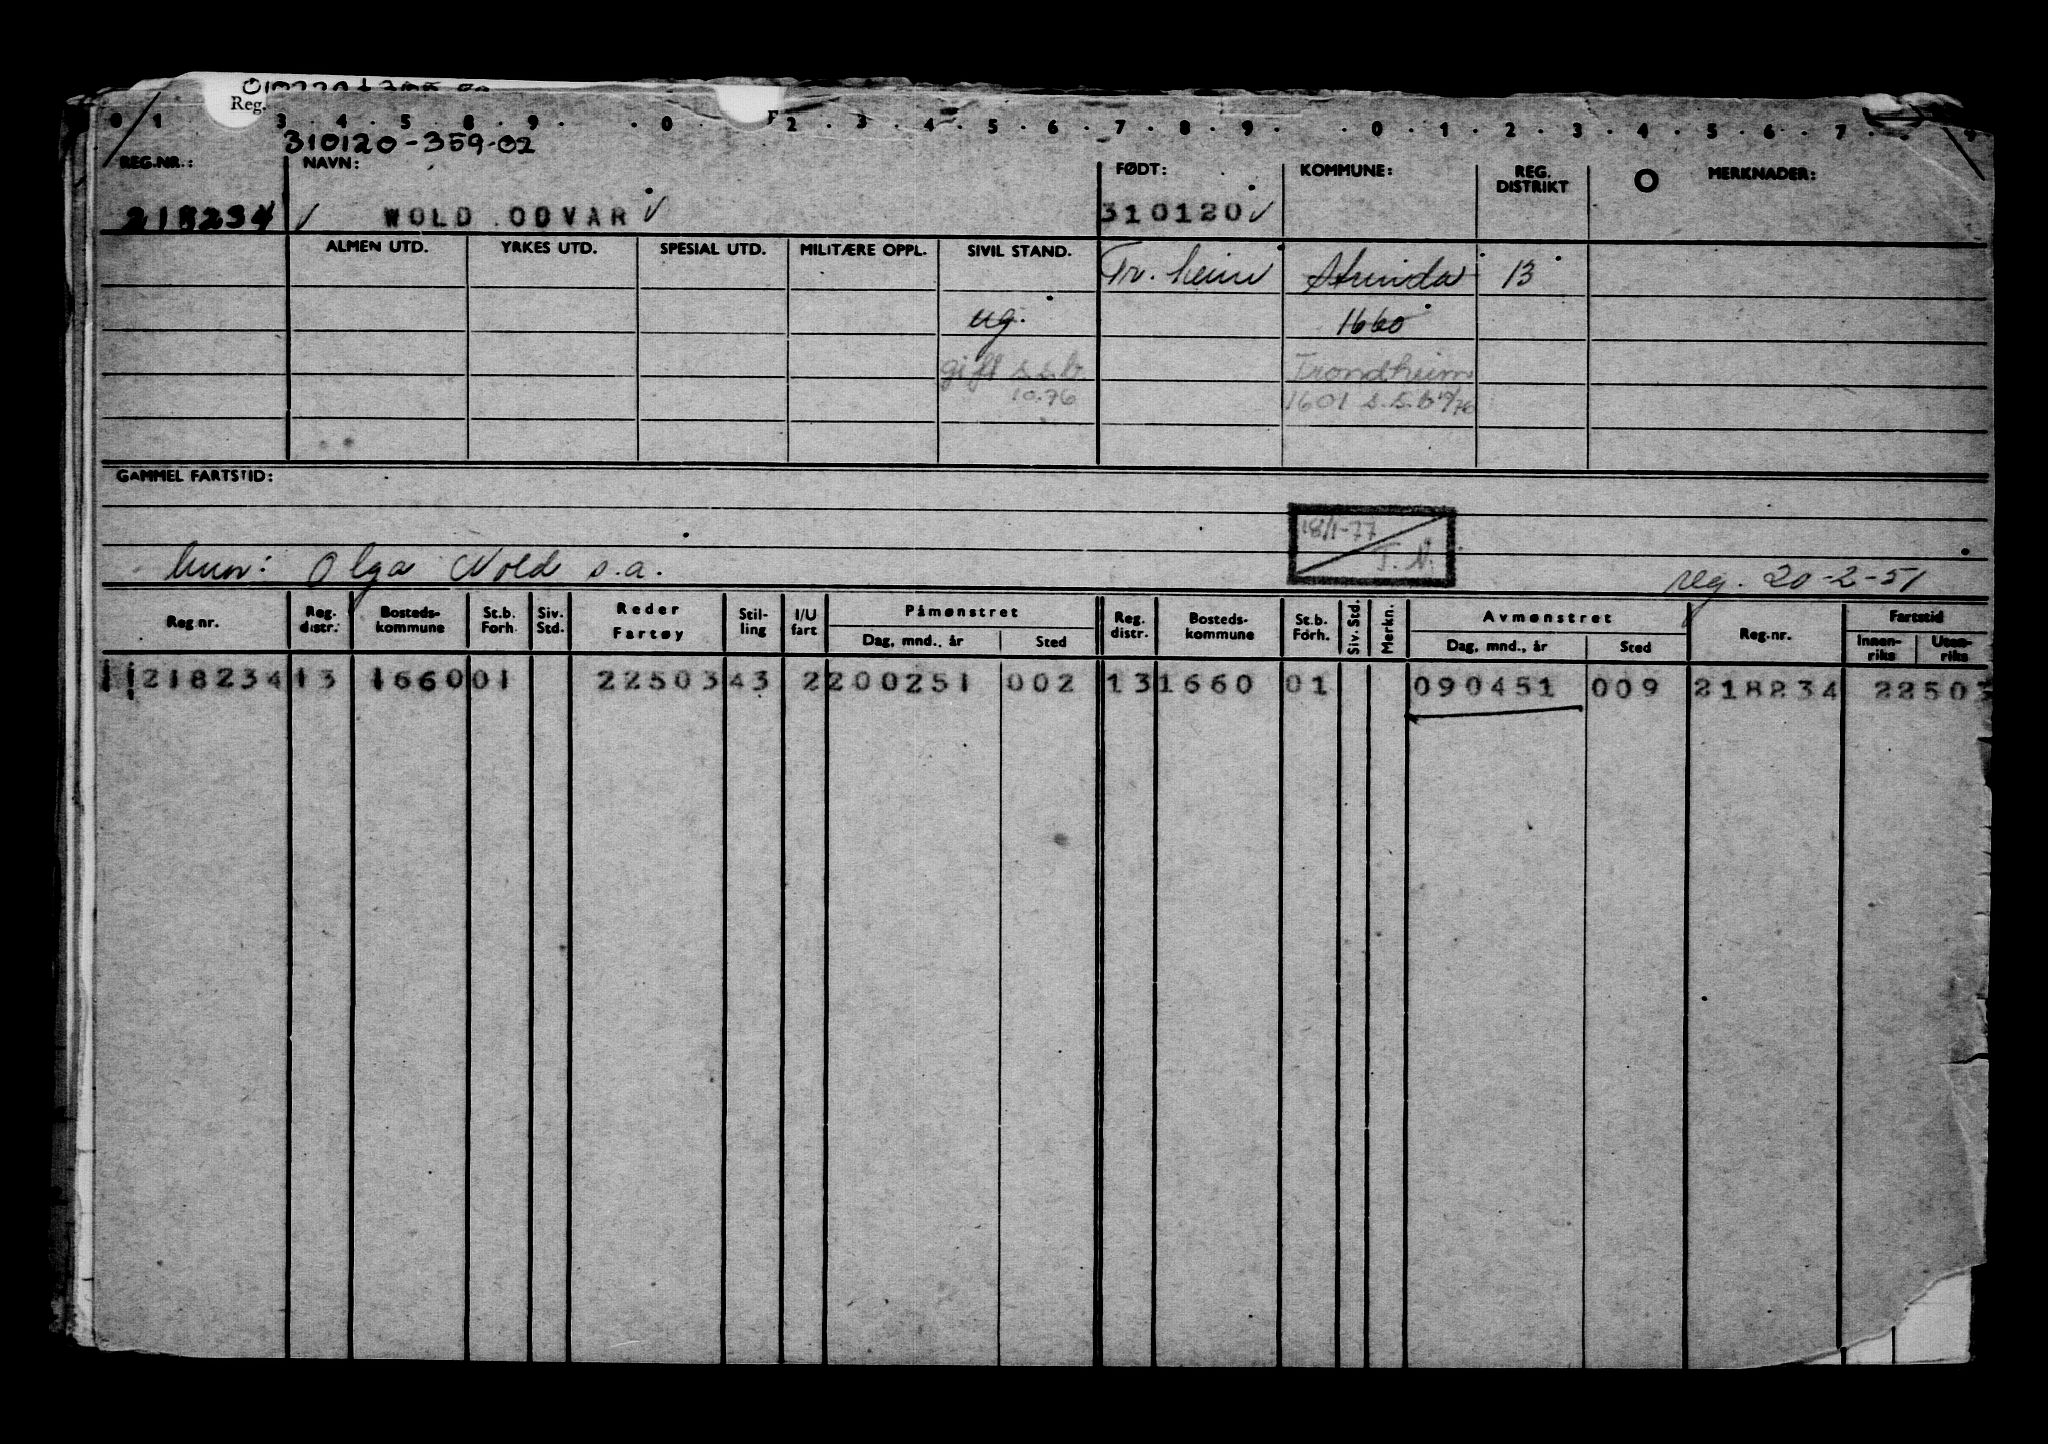 Reg. F
0 1 3 4 5 8 9 0 2 3 4 5 6 7 8 9 0 1 2 3 4 5 6 7 9
310120-359-02
REG.NR.: NAVN: FØDT: KOMMUNE: REG. DISTRIKT O MERKNADER:
218234 WOLD ODVAR 310120
ALMEN UTD. YRKES UTD. SPESIAL UTD. MILITÆRE OPPL. SIVIL STAND. Tr. heim Strinda 13
ug. 1660
gift s.s.b. Trondheim
10.76 1601 s.s.b
GAMMEL FARTSTID:
18/1-77
mor: Olga Wold s.a. reg. 20-2-51
Reg.nr. Reg. distr. Bosteds-kommune St.b. Forh. Siv. Std. Reder Fartøy Stil-ling I/U fart Påmønstret Dag, mnd., år Sted Reg. distr. Bosteds-kommune St.b. Forh. Siv. Std. Merkn. Avmønstret Dag, mnd., år Sted Reg.nr. Fartstid Innen-riks Uten-riks
218234 13 1660 01 22503 43 2 200251 002 13 1660 01 090451 009 218234 22503